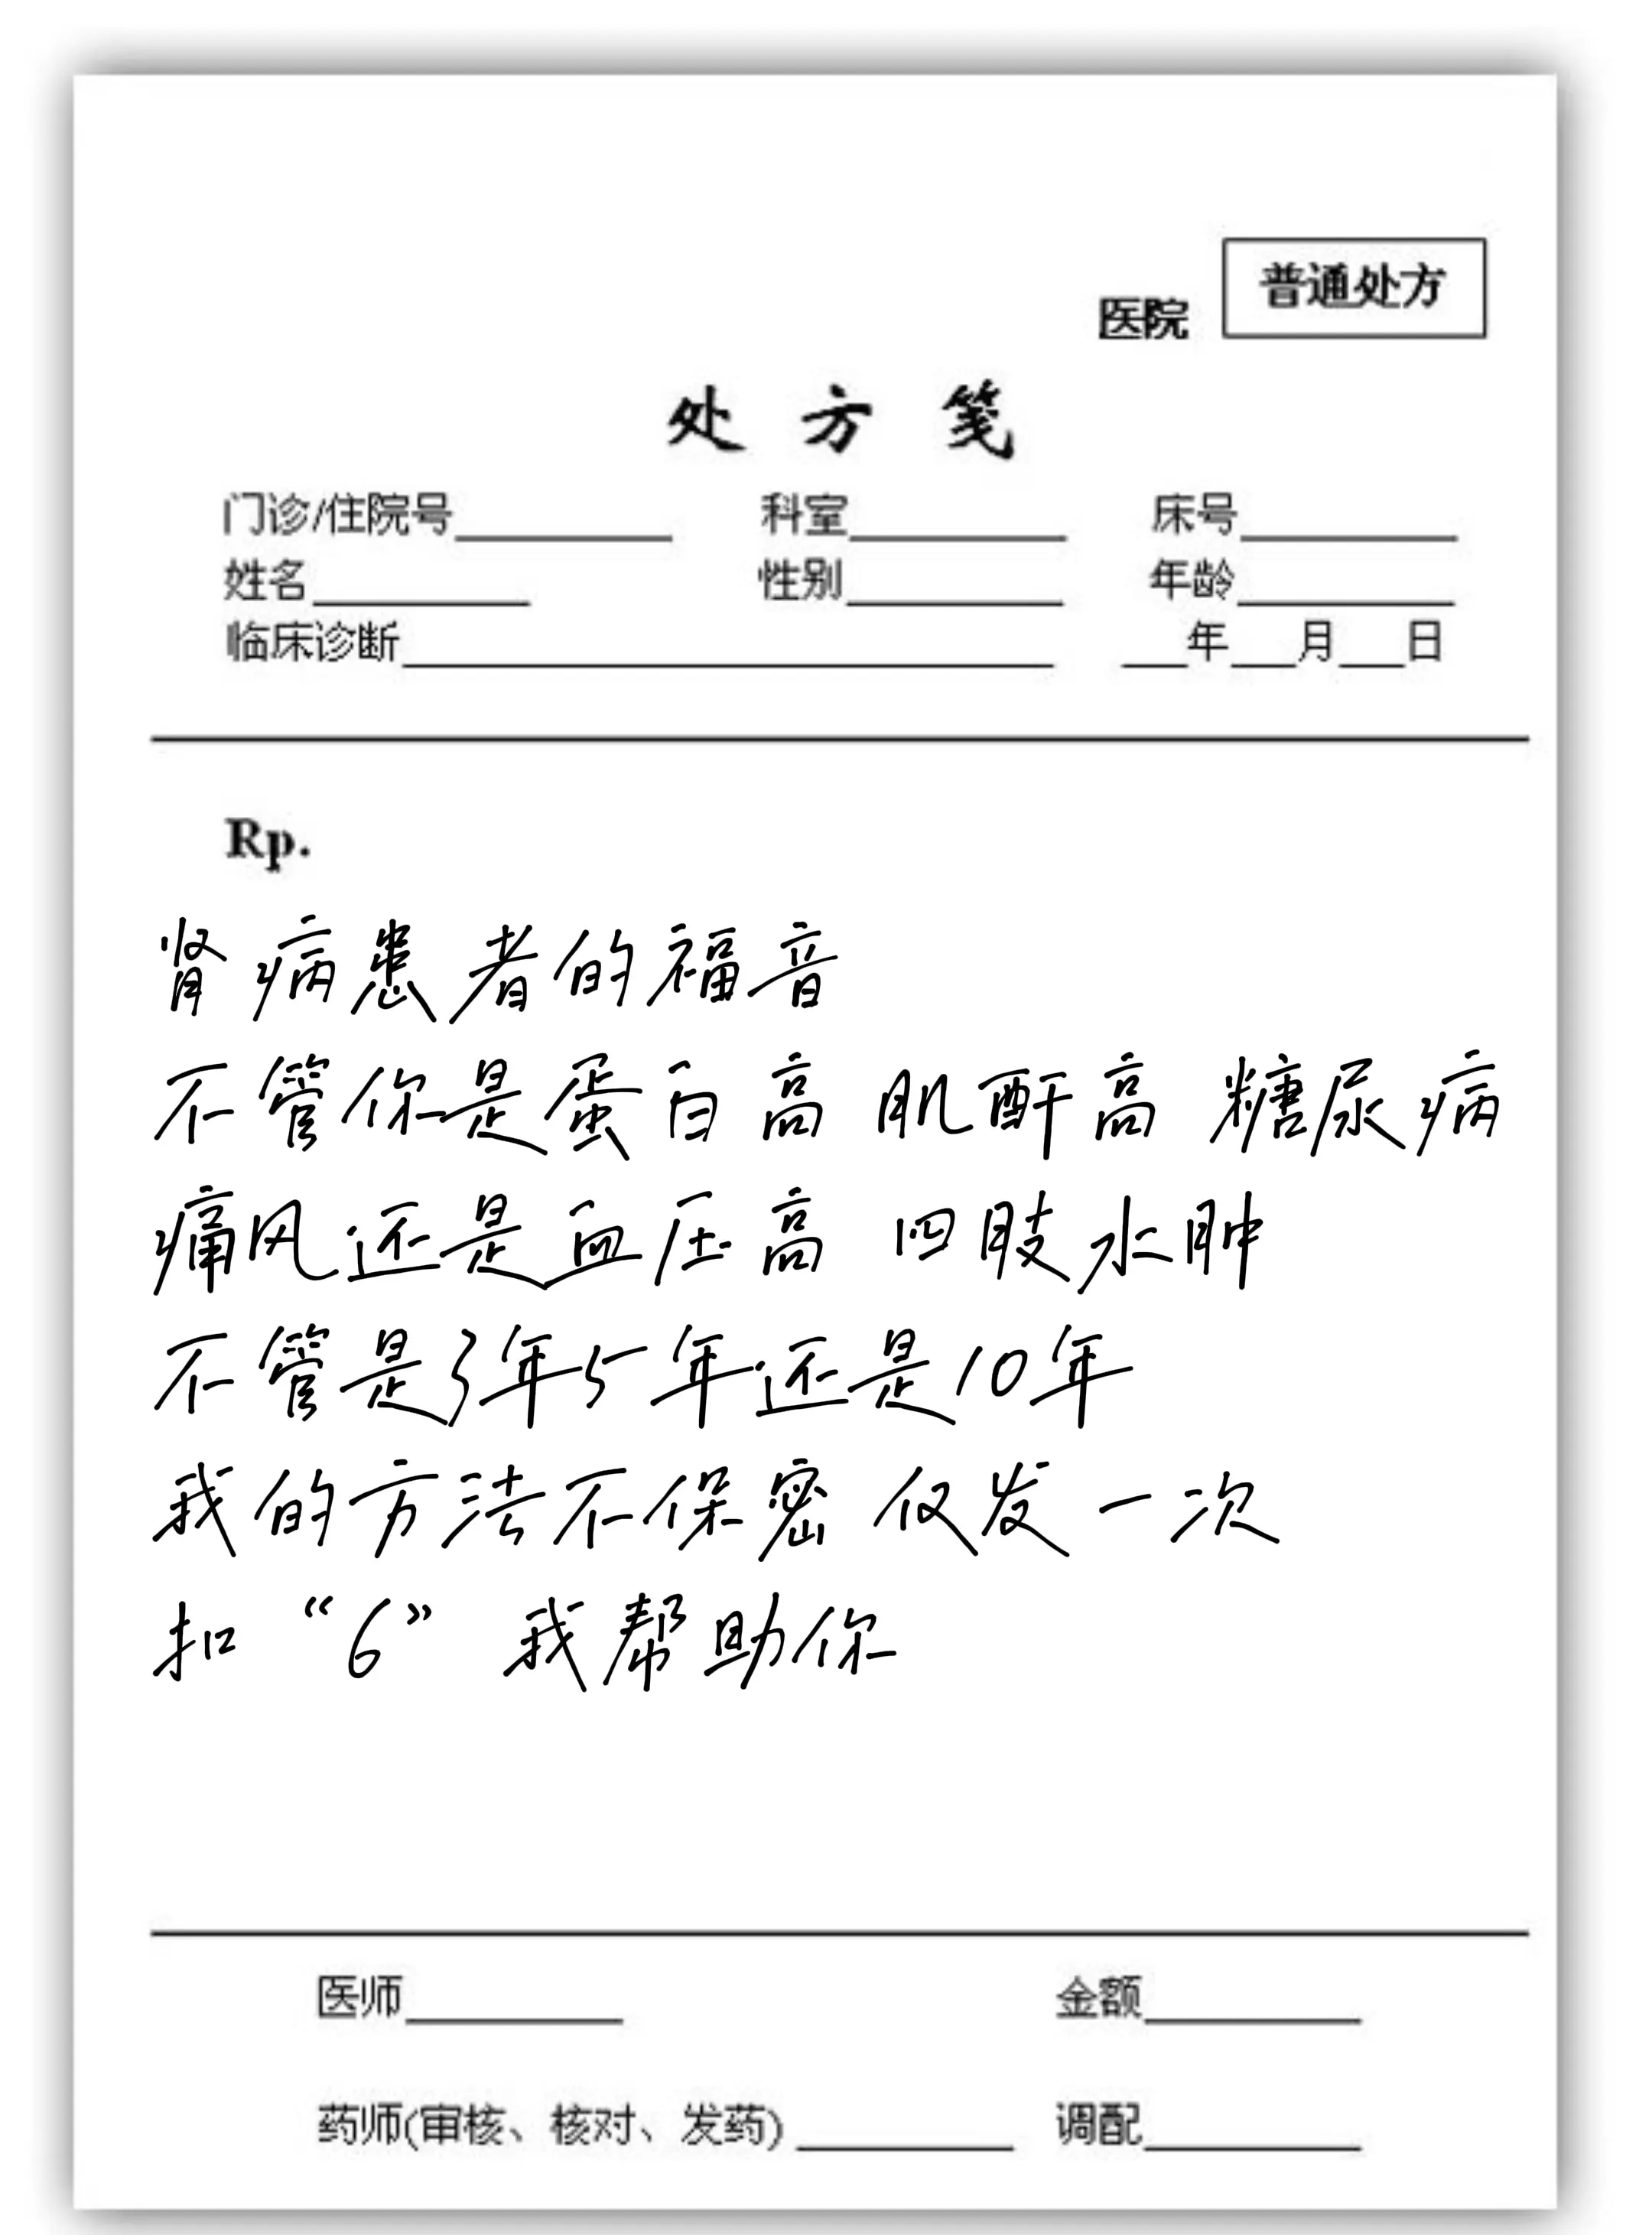 医院 普通处方
处方笺
门诊/住院号 科室 床号
姓名 性别 年龄
临床诊断 年 月 日
Rp.
肾病患者的福音
不管你是蛋白高 肌酐高 糖尿病
痛风还是血压高 四肢水肿
不管是3年5年还是10年
我的方法不保密 仅发一次
扣“6” 我帮助你
医师 金额
药师(审核、核对、发药) 调配